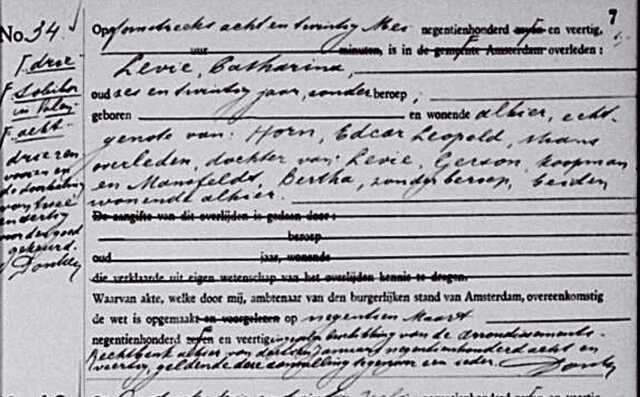 7
No. 34.
Op omstreeks acht en twintig Mei negentienhonderd zeven en veertig,
uur minuten, is in de gemeente Amsterdam overleden:
Levie, Catharina,
oud zes en twintig jaar, zonder beroep,
geboren en wonende alhier, echt-
genote van: Horn, Edcar Leopold, thans
overleden, dochter van: Levie, Gerson, koopman
en Mansfeldt, Bertha, zonder beroep, beiden
wonende alhier.
De aangifte van dit overlijden is gedaan door:
beroep
oud jaar, wonende
die verklaarde uit eigen wetenschap van het overlijden kennis te dragen.
Waarvan akte, welke door mij, ambtenaar van den burgerlijken stand van Amsterdam, overeenkomstig
de wet is opgemaakt en voorgelezen op negentien Maart
negentienhonderd zeven en veertig ingevolge beschikking van de Arrondissements-
Rechtbank alhier van dertien Januari negentienhonderd acht en
veertig, geldende deze aanvulling tegenover een ieder.
drie
in Polen
acht
drie en
de doorhaling
van twee
en dertig
woorden goed
gekeurd.